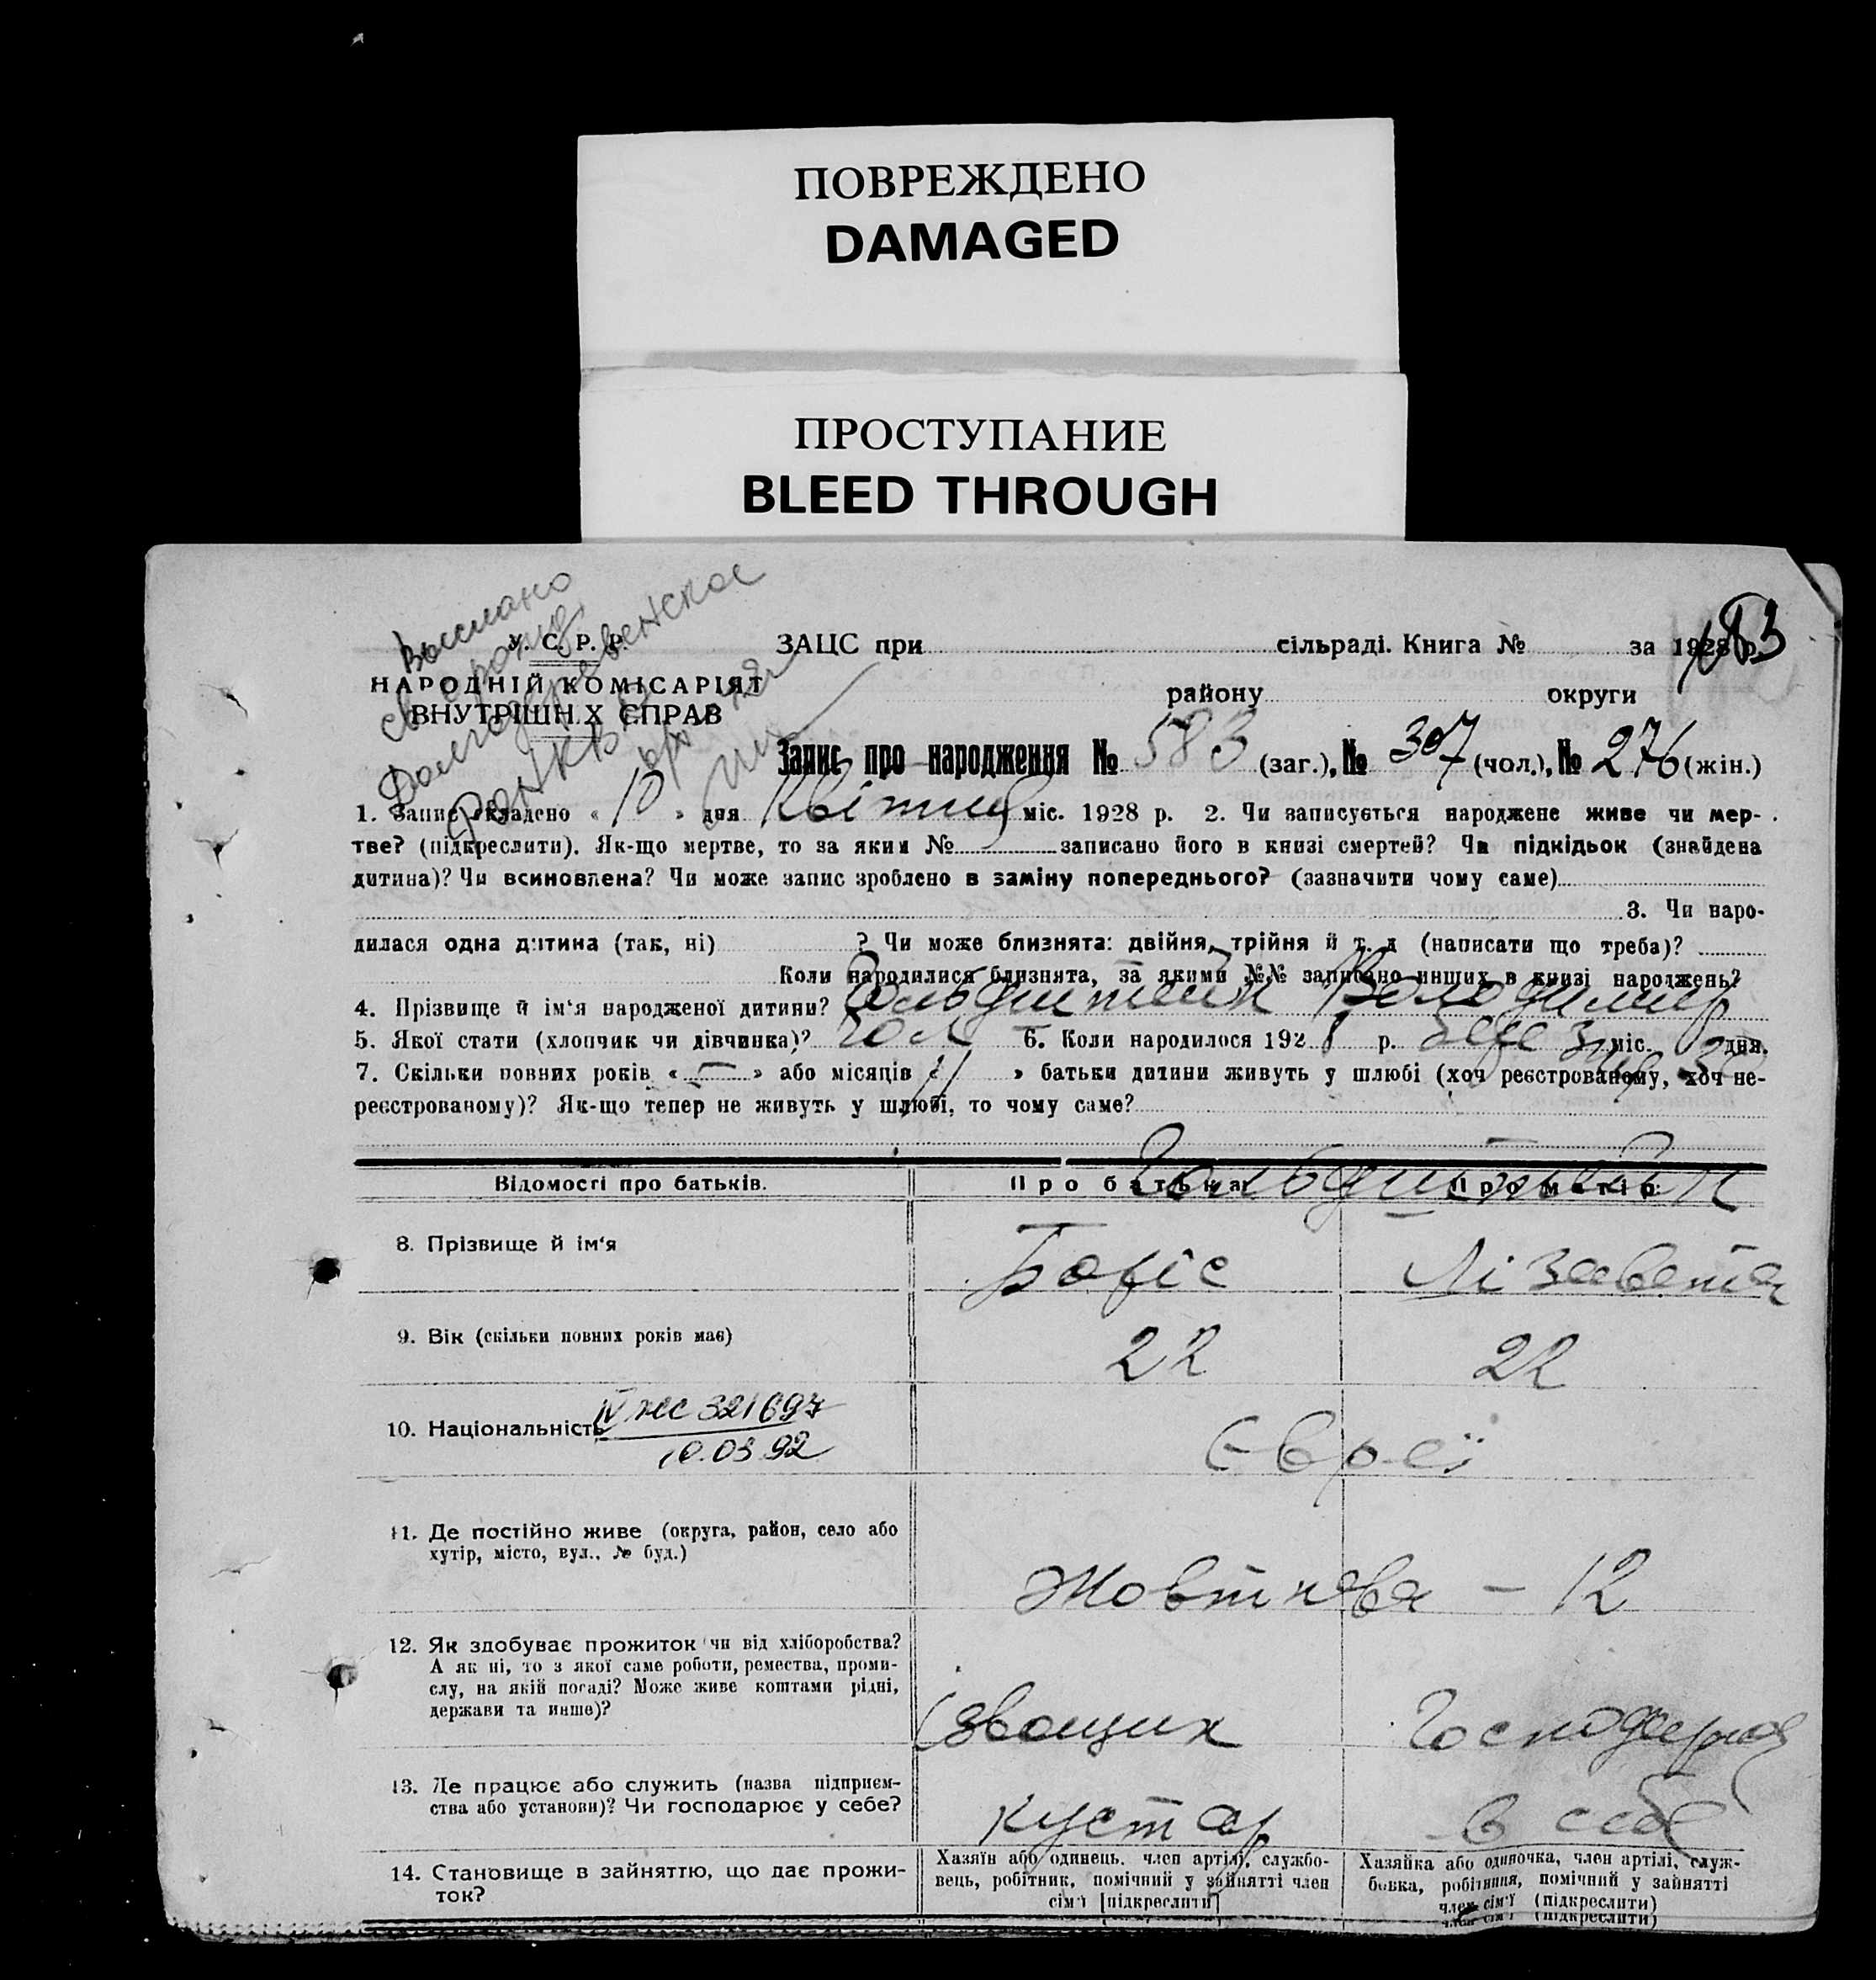 ПОВРЕЖДЕНО
DAMAGED
ПРОСТУПАНИЕ
BLEED THROUGH
Выслано
Долгодеревенское
У. С. Р. Р.
НАРОДНІЙ КОМІСАРІЯТ
ВНУТРІШНІХ СПРАВ
183
ЗАЦС при сільраді. Книга № за 1928 р.
району округи
Запис про народження № 583 (заг.), № 307 (чол.), № 276 (жін.)
1. Запис складено « 10 » дня Квітня міс. 1928 р. 2. Чи записується народжене живе чи мер-
тве? (підкреслити). Як-що мертве, то за яким № записано його в книзі смертей? Чи підкідьок (знайдена
дитина)? Чи всиновлена? Чи може запис зроблено в заміну попереднього? (зазначити чому саме)
3. Чи наро-
дилася одна дитина (так, ні) ? Чи може близнята: двійня, трійня й т. д (написати що треба)?
Коли народилися близнята, за якими №№ записано инших в книзі народжень?
4. Прізвище й ім‘я народженої дитини? Гольдштейн Володимир
5. Якої стати (хлопчик чи дівчинка)? чол 6. Коли народилося 1928 р. міс. 30 дня.
7. Скільки повних років « — » або місяців « 11 » батьки дитини живуть у шлюбі (хоч реєстрованому, хоч не-
реєстрованому)? Як-що тепер не живуть у шлюбі, то чому саме?
Відомості про батьків. Про батька Про матір
Гольдштейн
8. Прізвище й ім‘я Боріс Лізавета
9. Вік (скільки повних років має) 22 22
10. Національність Євреї
IV ЖС 321697
10.03.92
11. Де постійно живе (округа, район, село або
хутір, місто, вул., № буд.)
Жовтнева — 12
12. Як здобуває прожиток чи від хліборобства?
А як ні, то з якої саме роботи, ремества, проми-
слу, на якій посаді? Може живе коштами рідні,
держави та инше)?
Ізвощик Господарка
13. Де працює або служить (назва підприєм-
ства або установи)? Чи господарює у себе?
кустар в себе
14. Становище в зайняттю, що дає прожи-
ток?
Хазяїн або одинець, член артілі, службо-
вець, робітник, помічний у зайнятті член
сім‘ї [підкреслити]
Хазяйка або одиночка, член артілі, служ-
бовка, робітниця, помічний у зайнятті
член сім‘ї (підкреслити)
член сім‘ї (підкреслити)